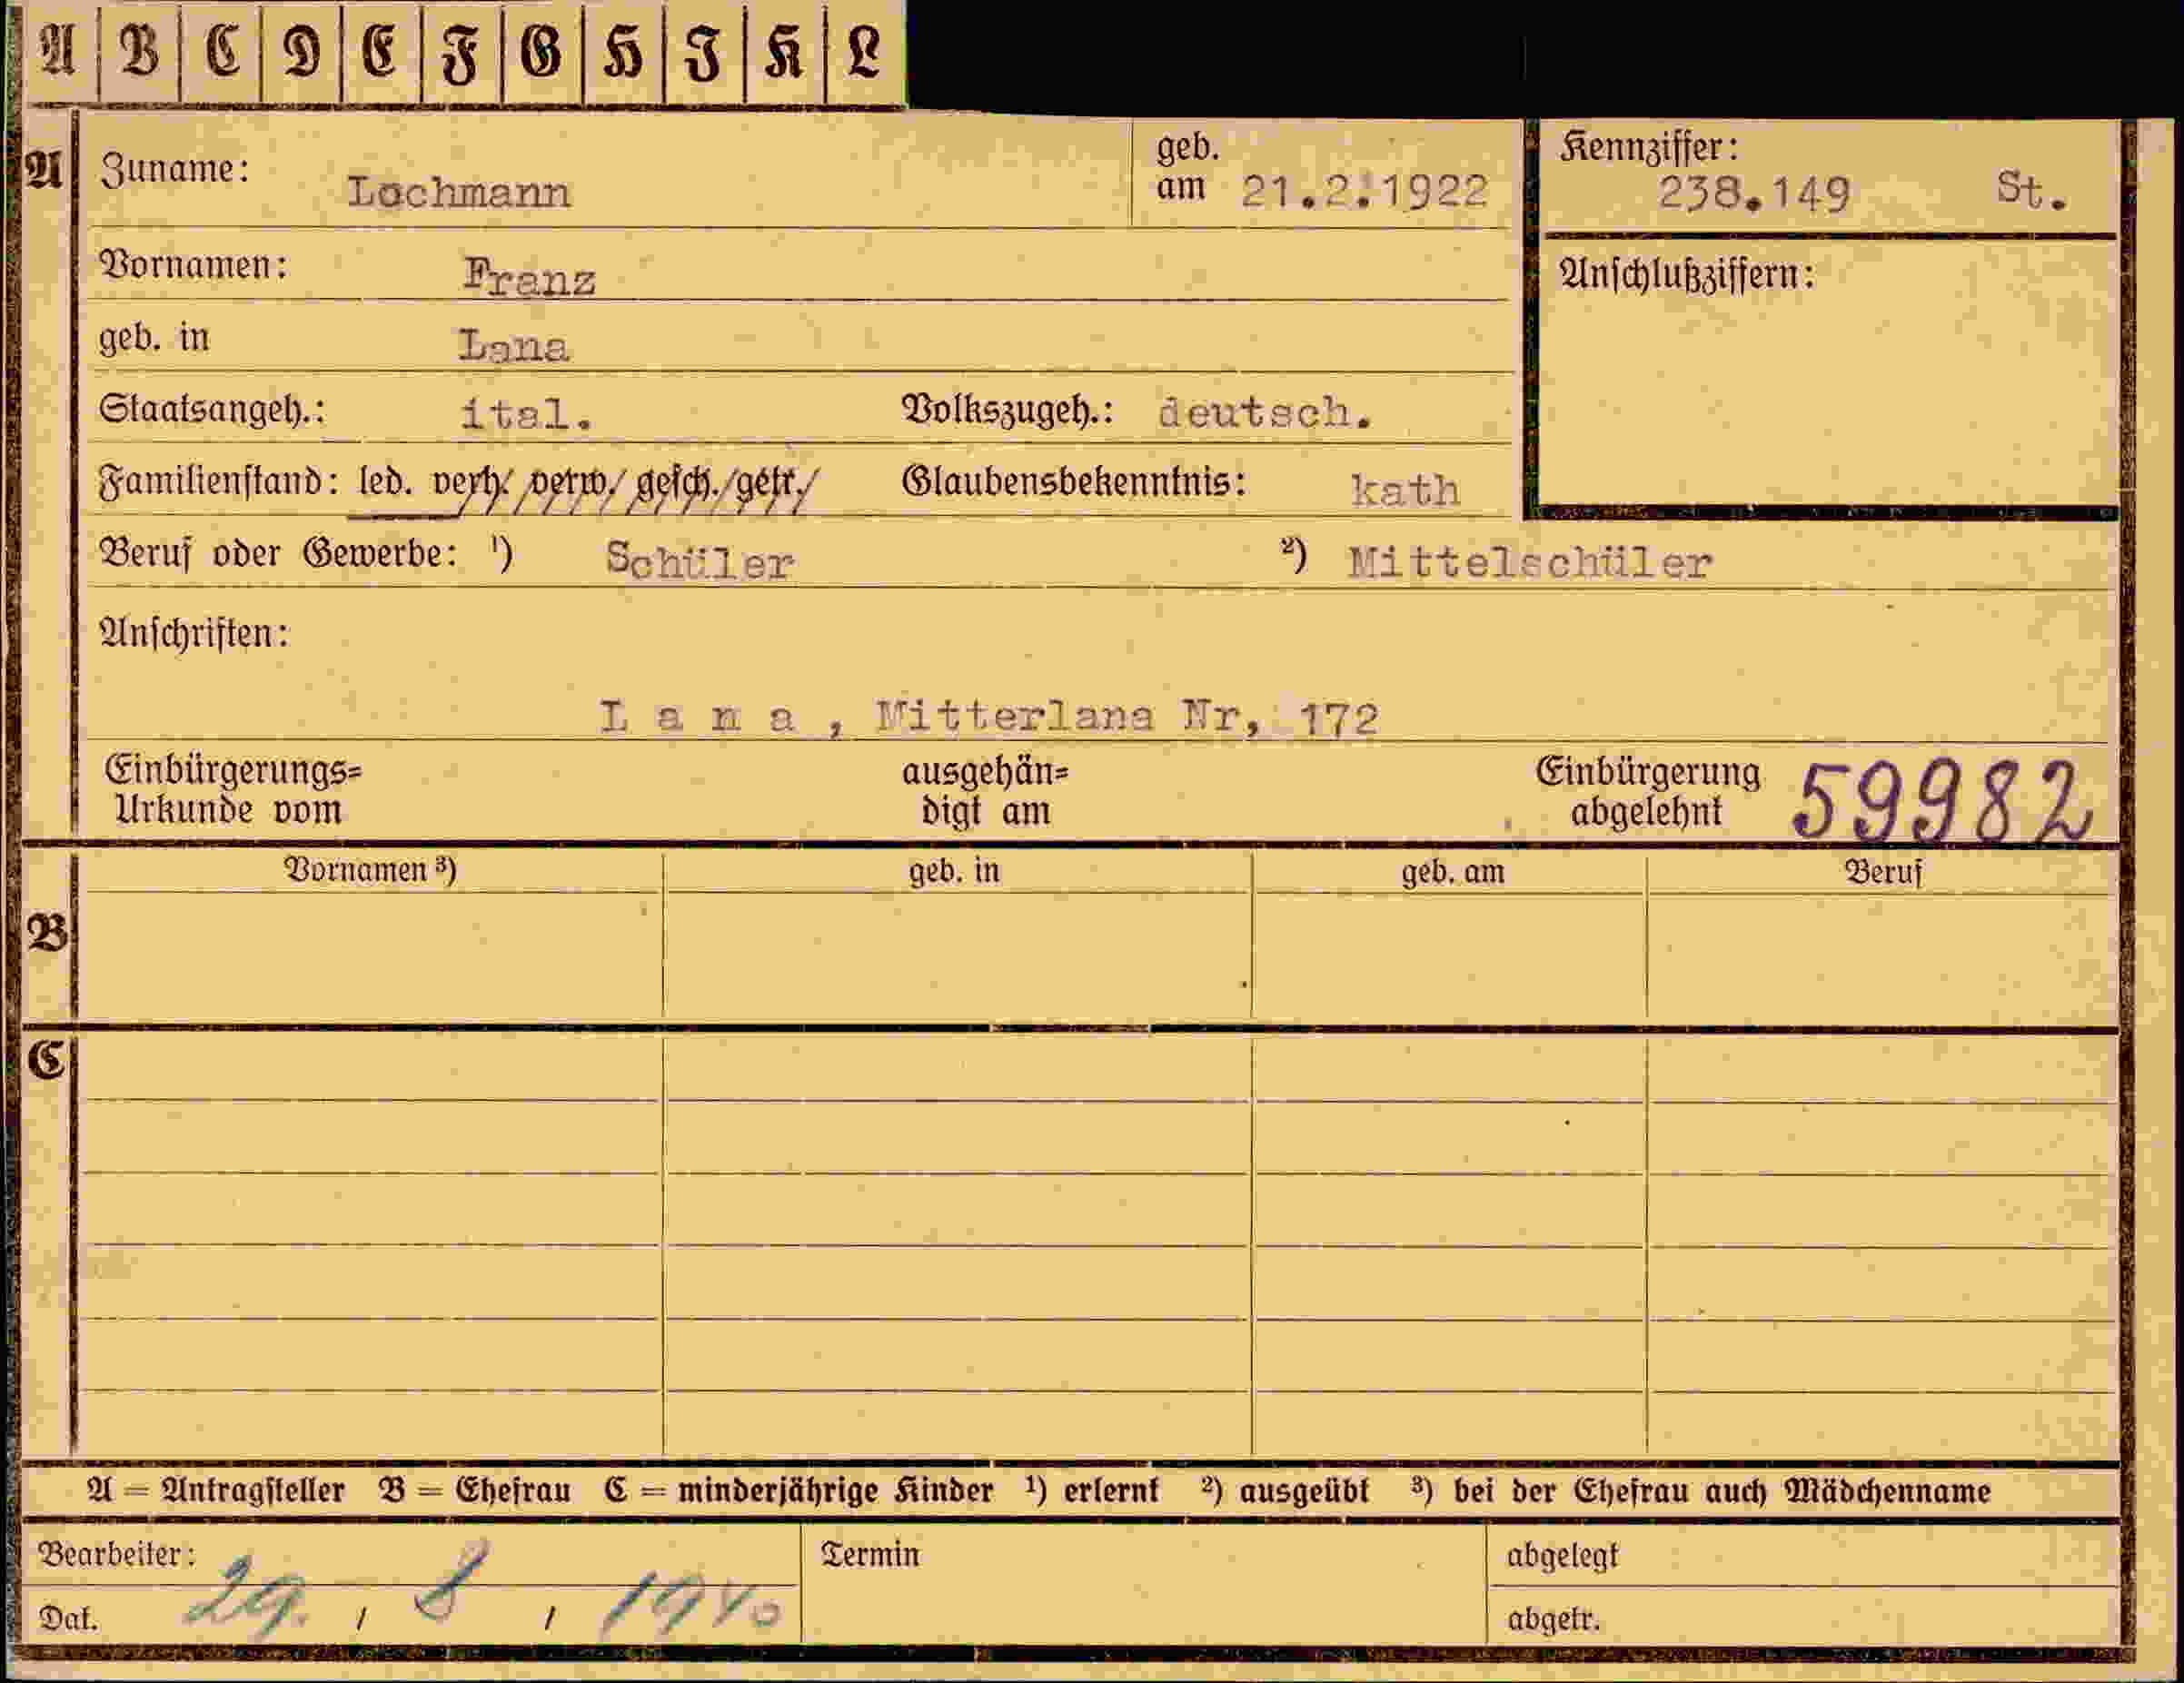 A B C D E F G H I K L
A
Zuname: Lochmann
geb. am 21.2.1922
Kennziffer: 238.149 St.
Vornamen: Franz
Anschlußziffern:
geb. in Lana
Staatsangeh.: ital. Volkszugeh.: deutsch.
Familienstand: led. verh./verw./gesch./getr./ Glaubensbekenntnis: kath
Beruf oder Gewerbe: ¹) Schüler ²) Mittelschüler
Anschriften:
L a n a , Mitterlana Nr, 172
Einbürgerungs= ausgehän= Einbürgerung 59982
Urkunde vom digt am abgelehnt
Vornamen ³) geb. in geb. am Beruf
B
C
A = Antragsteller B = Ehefrau C = minderjährige Kinder ¹) erlernt ²) ausgeübt ³) bei der Ehefrau auch Mädchenname
Bearbeiter: Termin abgelegt
Dat. 29. / 8 / 1940 abgetr.